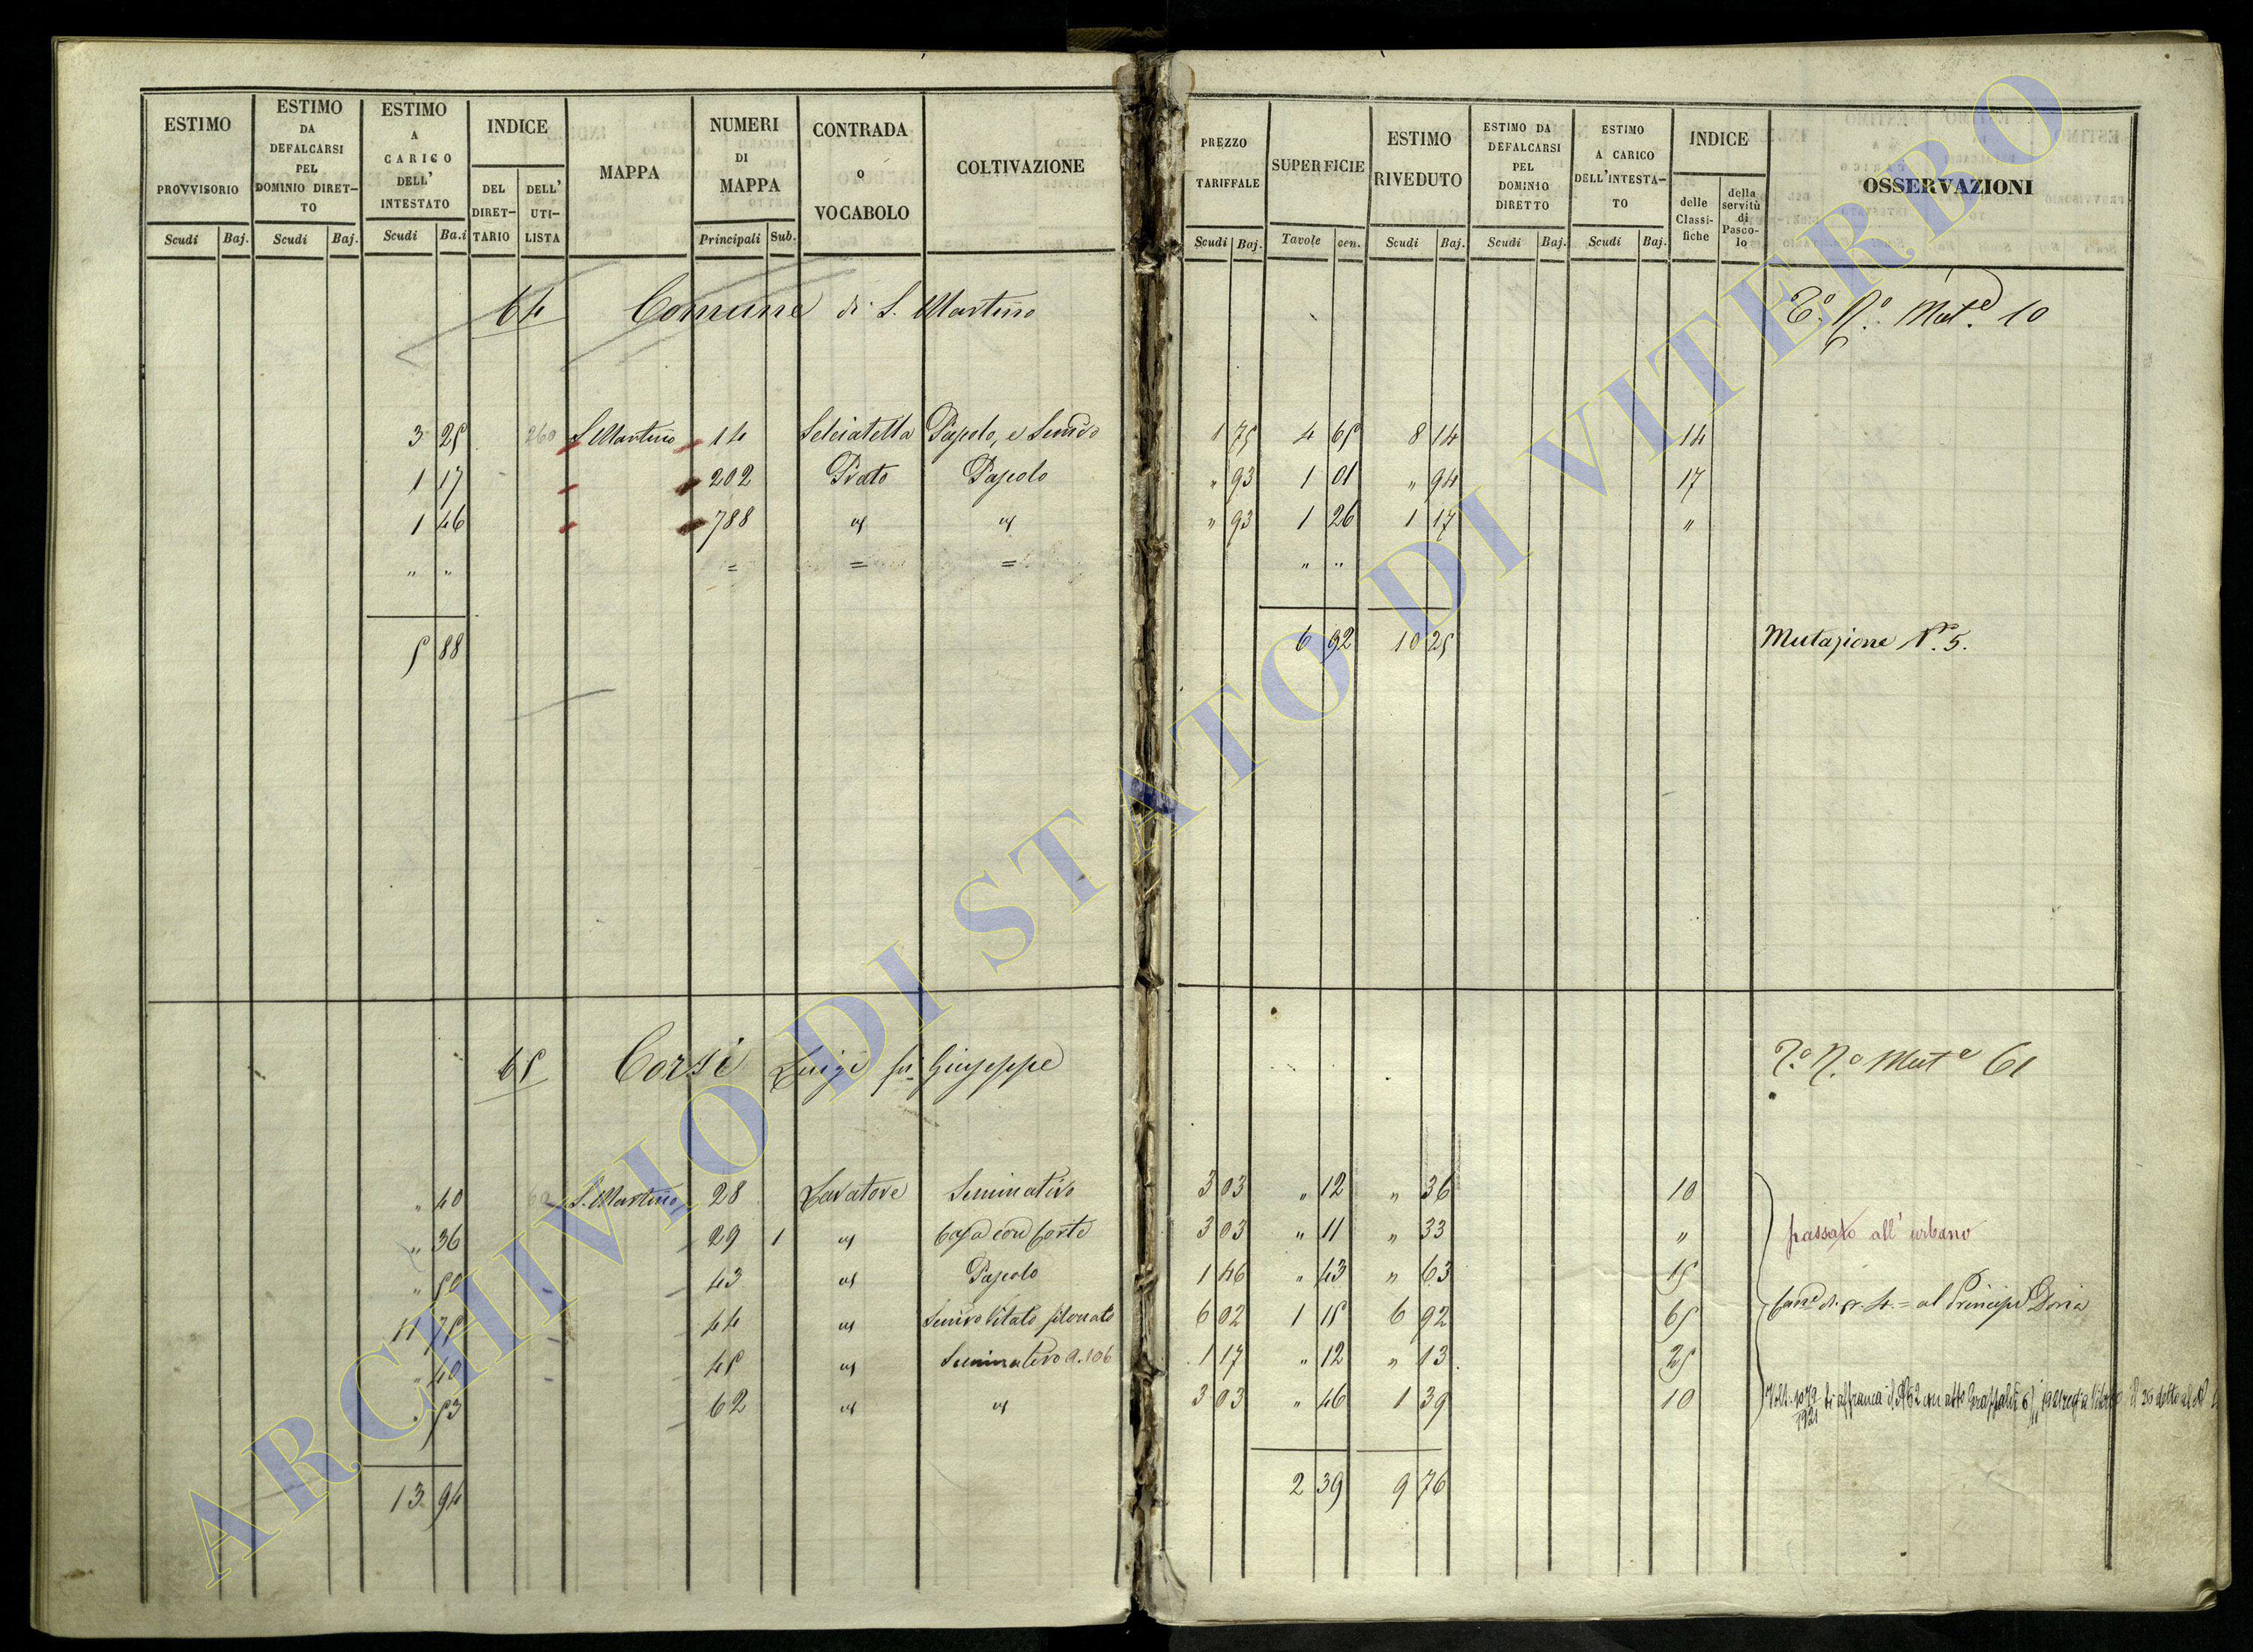 ESTIMO PROVVISORIO Scudi Baj.
ESTIMO DA DEFALCARSI PEL DOMINIO DIRET-TO Scudi Baj.
ESTIMO A CARICO DELL' INTESTATO Scudi Ba.i
INDICE DEL DIRET-TARIO DELL' UTI-LISTA
MAPPA
NUMERI DI MAPPA Principali Sub.
CONTRADA O VOCABOLO
COLTIVAZIONE
PREZZO TARIFFALE Scudi Baj.
SUPERFICIE Tavole cen.
ESTIMO RIVEDUTO Scudi Baj.
ESTIMO DA DEFALCARSI PEL DOMINIO DIRETTO Scudi Baj.
ESTIMO A CARICO DELL'INTESTA-TO Scudi Baj.
INDICE delle Classi-fiche della servitù di Pasco-lo
OSSERVAZIONI
64 Comune di S. Martino Mut.e 10
3 25 260 S. Martino 14 Selciatella Pascolo, e Semivo 1 75 4 65 8 14 14
1 17 202 Prato Pascolo " 93 1 01 " 94 17
1 46 788 " " " 93 1 26 1 17 "
" " = = = " "
5 88 6 92 10 25 Mutazione N.o 5.
65 Corsi Luigi fu Giuseppe Mut.e 61
" 40 60 S. Martino 28 Lavatore Seminativo 3 03 " 12 " 36 10
" 36 29 1 " Casa con Corte 3 03 " 11 " 33 " passato all' urbano
" 50 43 " Pascolo 1 46 " 43 " 63 15
11 75 44 " Semivo Vitato 6 02 1 15 6 92 65 al Principe Doria
" 40 45 " Seminativo 1 17 " 12 " 13 25
" 53 62 " " 3 03 " 46 1 39 10 1921
13 94 2 39 9 76
ARCHIVIO DI STATO DI VITERBO